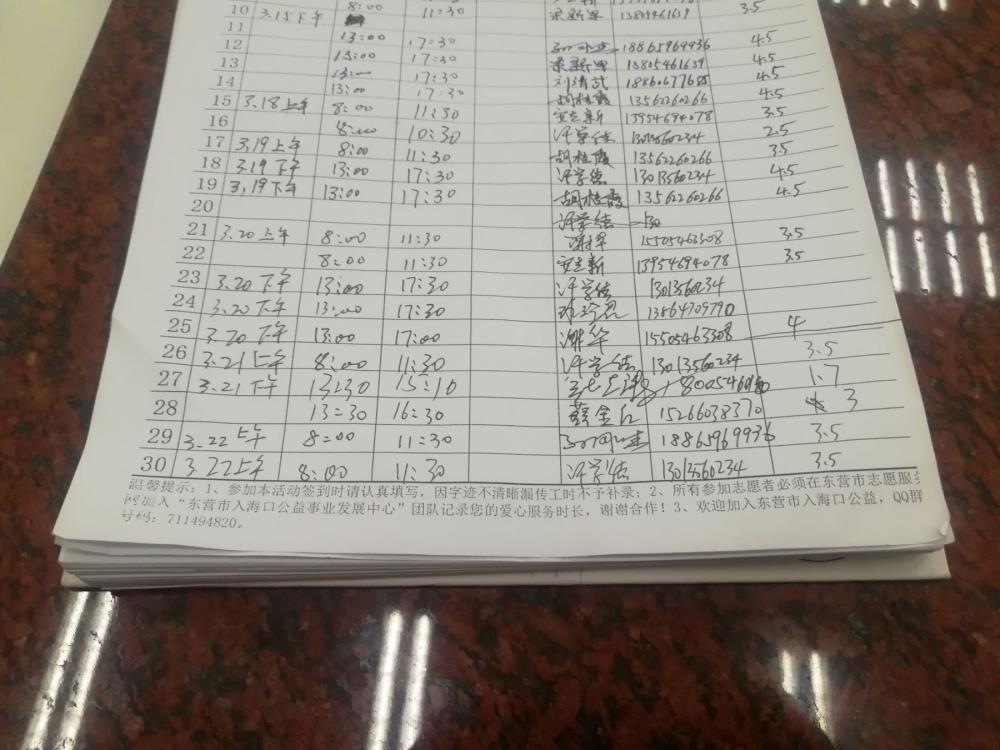 10 3.15下午 8:00 11:30 13805461619 3.5
11
12 13:00 17:30 18865969936 4.5
13 13:00 17:30 13805461639 4.5
14 13:00 17:30 刘清武 4.5
13:00 17:30 胡桂霞 13562260266 4.5
15 3.18上午 8:00 11:30 安立新 13954694078 3.5
16 8:00 10:30 许学信 13013560234 2.5
17 3.19上午 8:00 11:30 胡桂霞 13562260266 3.5
18 3.19下午 13:00 17:30 许学信 13013560234 4.5
19 3.19下午 13:00 17:30 胡桂霞 13562260266 4.5
20 许学信 130
21 3.20上午 8:00 11:30 15505463308 3.5
22 8:00 11:30 安立新 13954694078 3.5
23 3.20下午 13:00 17:30 许学信 13013560234
24 3.20下午 13:00 17:30 13864709790
25 3.20下午 13:00 17:00 15505463308 4
26 3.21上午 8:00 11:30 许学信 13013560234 3.5
27 3.21下午 13:30 15:10 1.7
28 13:30 16:30 15266038370 3
29 3.22上午 8:00 11:30 18865969936 3.5
30 3.22上午 8:00 11:30 许学信 13013560234 3.5
温馨提示：1、参加本活动签到时请认真填写，因字迹不清晰漏传工时不予补录；2、所有参加志愿者必须在东营市志愿服务
网加入“东营市入海口公益事业发展中心”团队记录您的爱心服务时长，谢谢合作！3、欢迎加入东营市入海口公益，QQ群
号码：711494820。